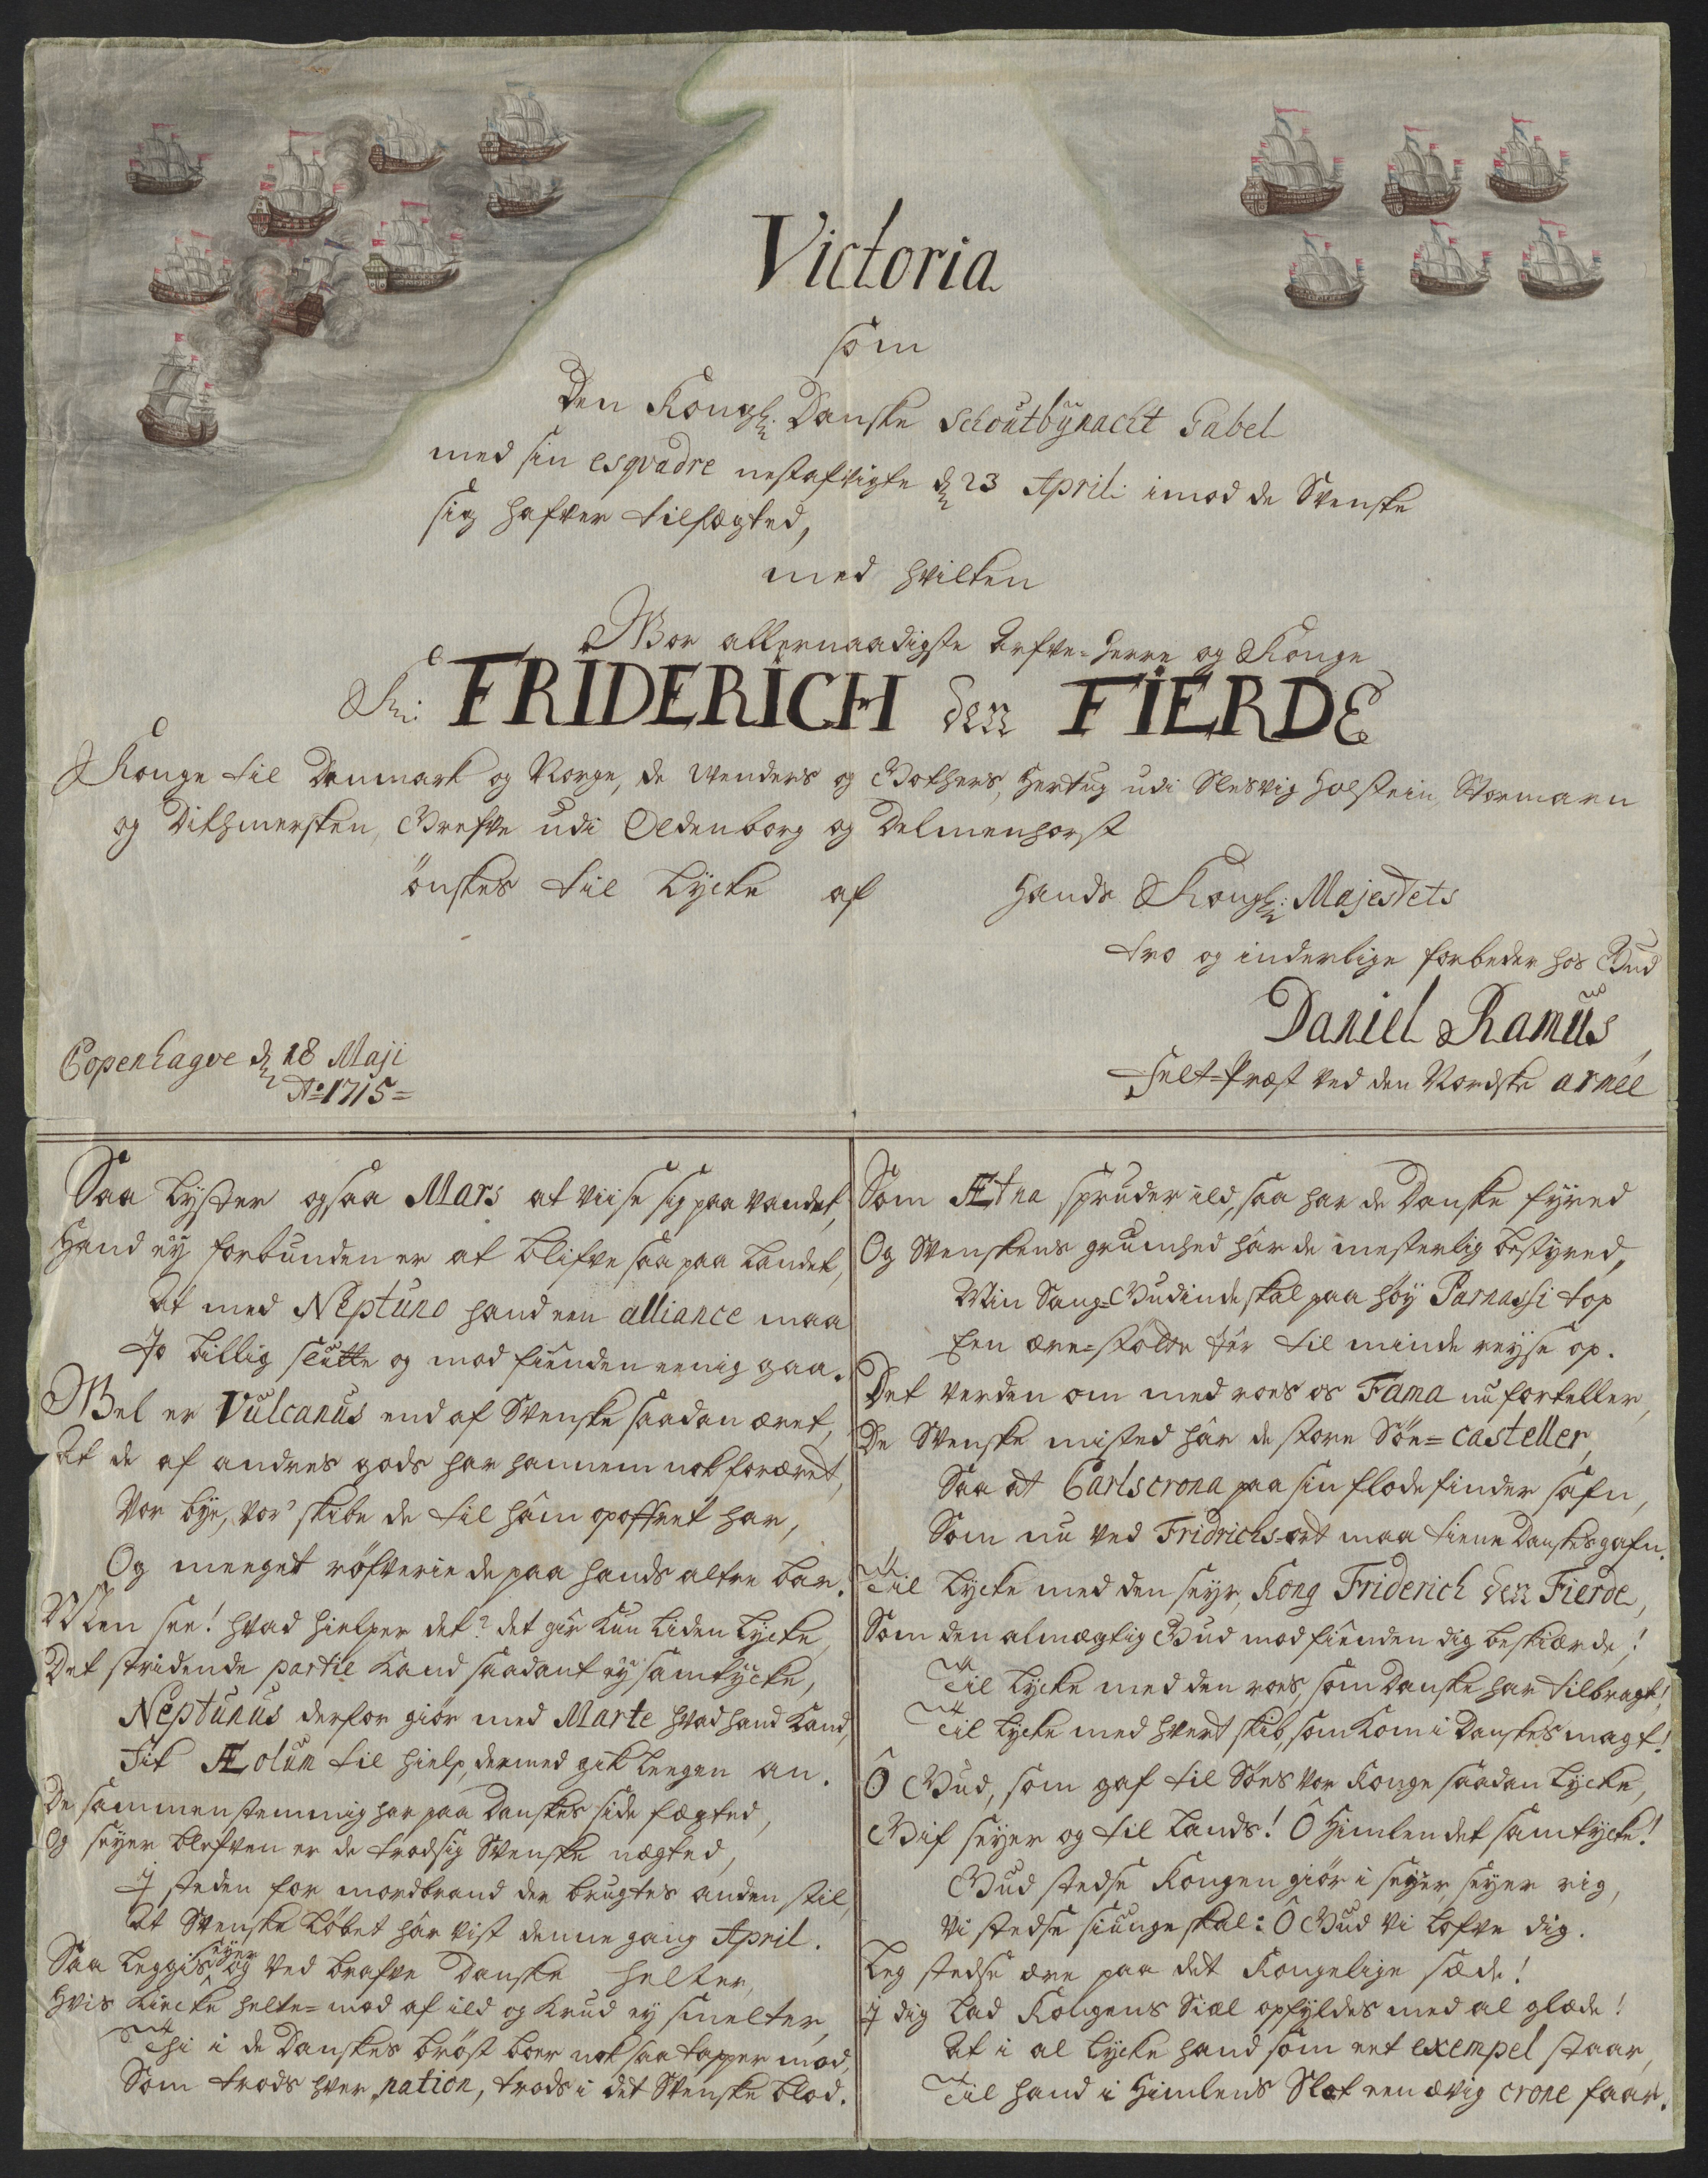 Victoria
som
Den Kongl: Danske Schoutbÿnacht Gabel
med sin esqvadre nestafvigte d 23 April: imod de Svenske
sig hafver tilfægted,
med hvilken
Vor allernaadigste Arfve-Herre og Konge
FRIDERICH den FIERDE
Konge til Danmark og Norge, de Wenders og Gothers, Hertug udi Slesvig Holstein, Stormarn
og Dithmersken, Grefve udi Oldenborg og Delmenhorst
önskes til Lÿcke af Hands Kongl: Majestets
tro og inderlige forbeder hos Gud
Daniel Ramus
Felt-Præst ved den Nordske armée
Copenhagve d 18 Maji
Ao 1715
Saa lyster ogsaa Mars at viise sig paa vandet,
Hand eÿ forbunden er at blifve saa paa landet,
At med Neptuno hand een alliance maa
Jo billig slutte og mod fienden eenig gaa.
Vel er Vulcanus end af Svenske saadan æret,
At de af andres gods har hannem nok foræret,
Vor bye, vor' skibe de til ham opoffret har,
Og meeget röfverie de paa hands altre bar.
Men see! hvad hielper det? det gir kun liden lÿcke,
Det stridende partie kand saadant eÿ samtÿcke,
Neptunus derfor giör med Marte hvad hand kand,
Fik Æolum til hielp, dermed gik leegen an.
De sammenstemmig har paa Danskes side fægted,
Og seÿer blefven er de trodsig Svenske nægted,
J steden for mordbrand der brugtes anden stil,
At Svenske løbet har vist denne gang April.
Saa leggis seÿer og ved brafve Danske helter,
Hvis kiecke helte-mod af ild og krud eÿ smelter,
Thi i de Danskes bröst boer nok saa tapper mod,
Som trods hver nation, trods i det Svenske blod.
Som Ætna spruder ild, saa har de Danske fÿred
Og Svenskens grumhed har de mesterlig bestÿred,
Min Sang-Gudinde skal paa höÿ Parnassi top
Een ære-stötte her til minde reÿse op.
Det verden om med roes os Fama nu forteller,
De Svenske misted har de store Söe-casteller,
Saa at Carlscrona paa sin flode finder safn,
Som nu ved Fridrichs-ort maa tiene Danskes gafn.
Til Lÿcke med den seÿr, Kong Friderich den Fierde,
Som den almægtig Gud mod fienden dig beskiærde!
Til Lÿcke med den roes, som Danske har tilbragt!
Til Lÿcke med hvert skib, som kom i Danskes magt!
Ô Gud, som gaf til Söes vor Konge saadan lÿcke,
Gif seÿer og til Lands! Ô Himlen det samtÿcke!
Gud stedse Kongen giör i seÿer, seÿer rig,
Vi stedse siunge skal: Ô Gud vi lofve dig.
Leg stedse ære paa det Kongelige sæde!
J dig lad Kongens Siæl opfÿldes med al glæde!
At i al lÿcke hand som eet exempel staar,
Til hand i Himlens Slot een ævig crone faar.